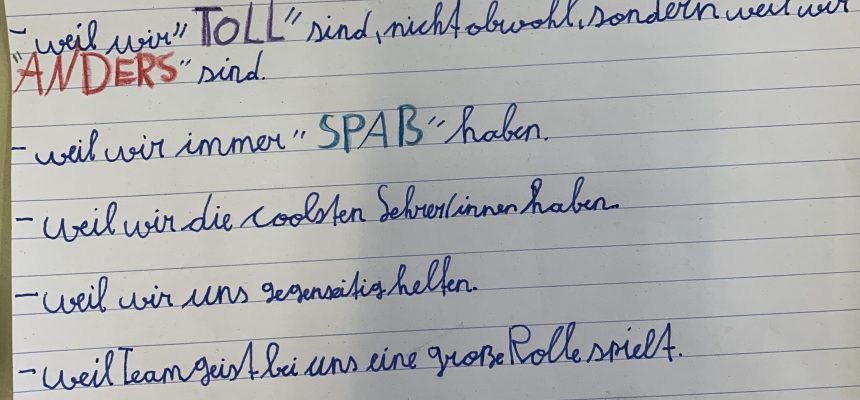 - weil wir "TOLL" sind, nicht obwohl, sondern weil wir
"ANDERS" sind.
- weil wir immer "SPAß" haben.
- weil wir die coolsten Lehrer/innen haben.
- weil wir uns gegenseitig helfen.
- weil Teamgeist bei uns eine große Rolle spielt.